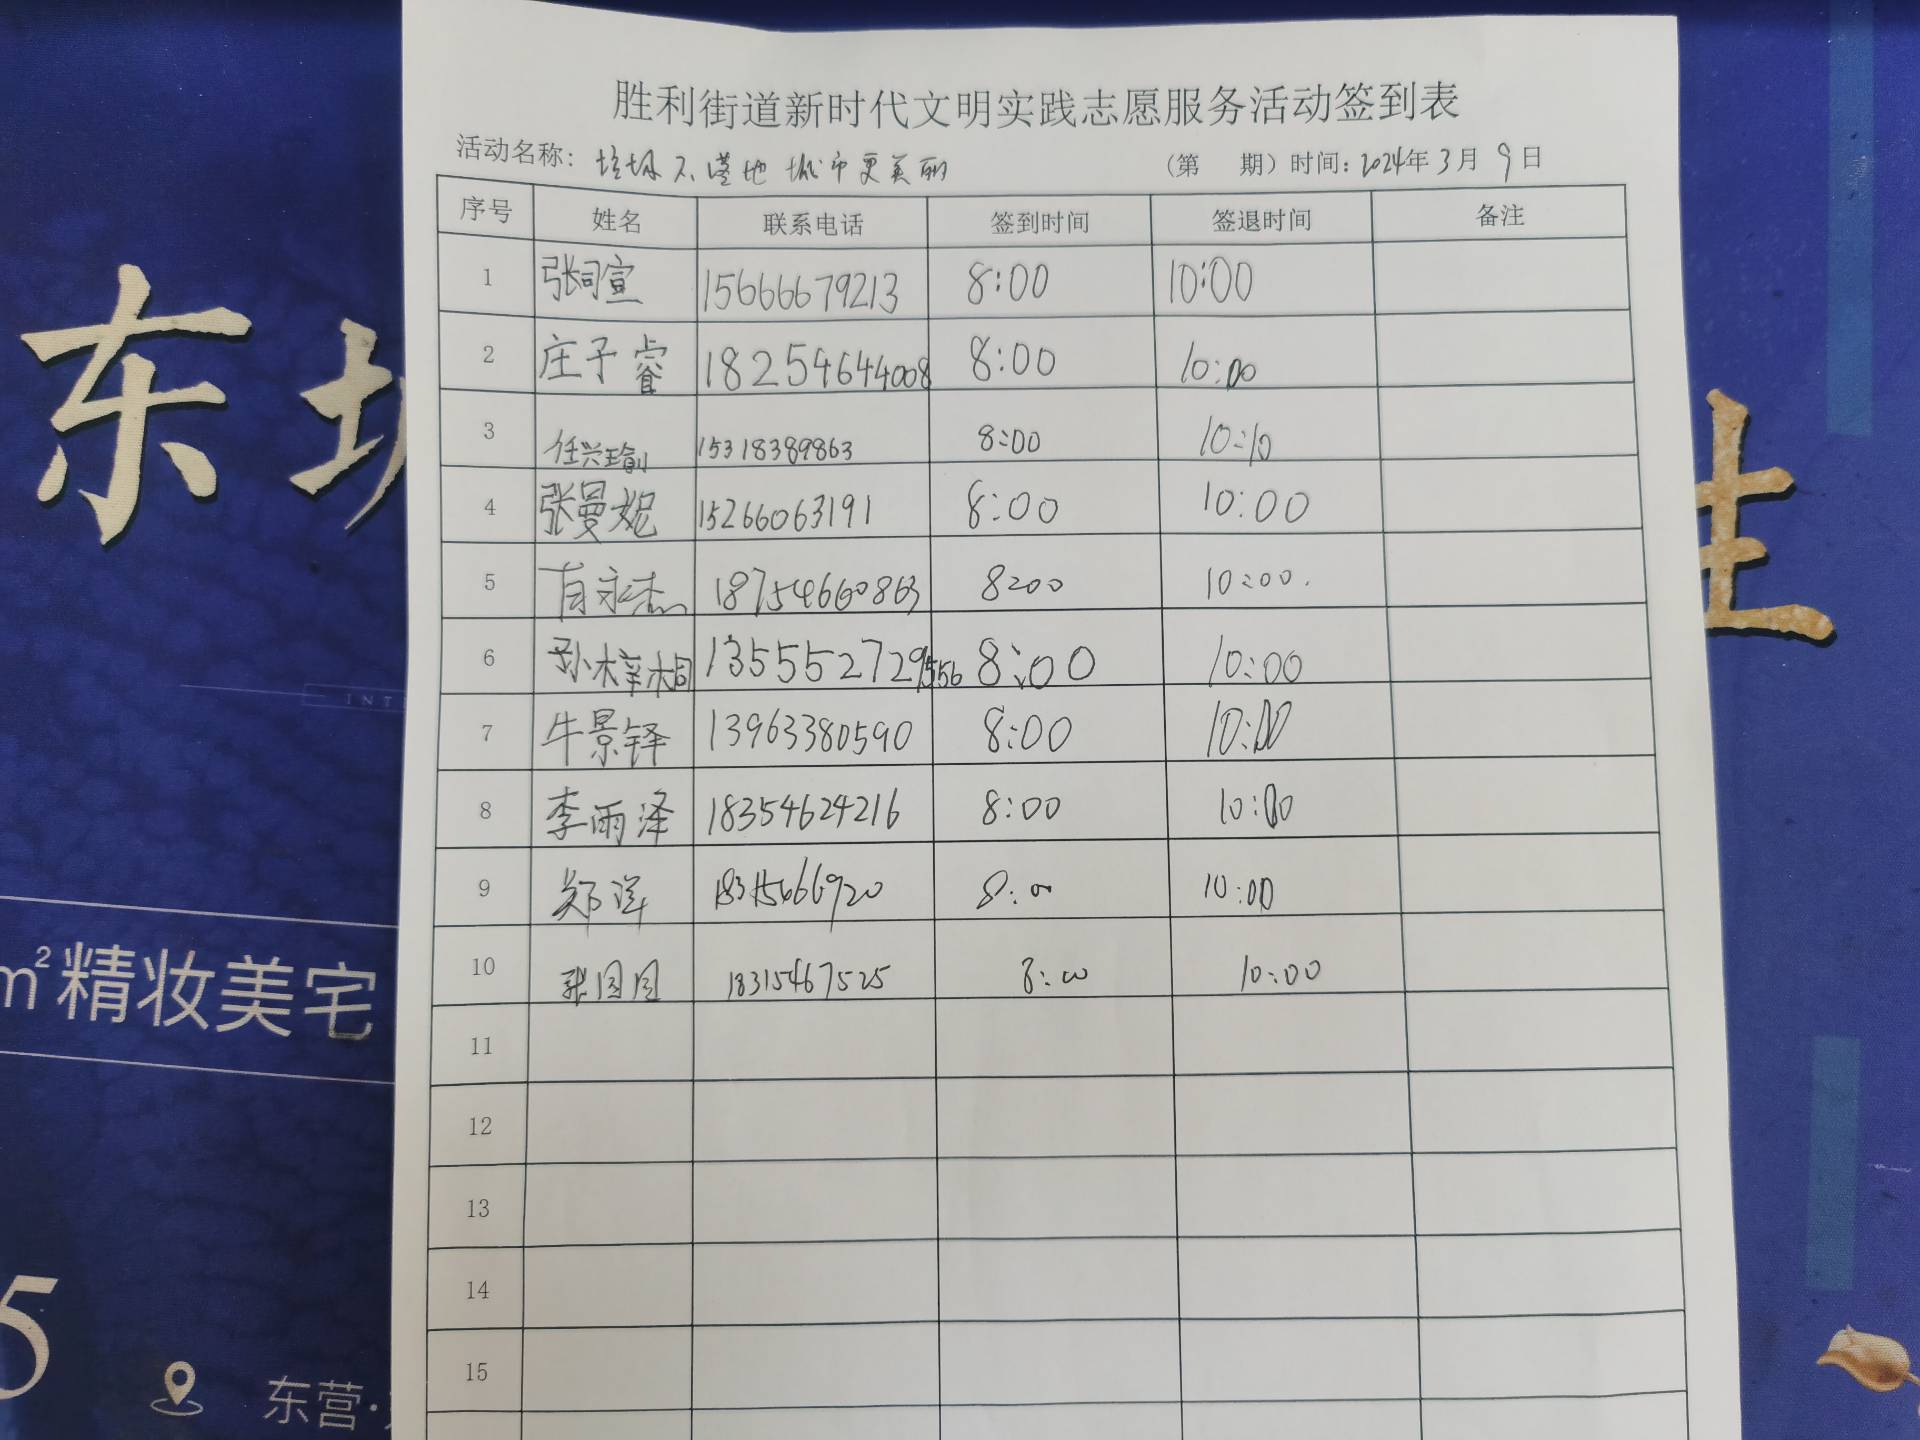 胜利街道新时代文明实践志愿服务活动签到表
活动名称：垃圾不落地 城市更美丽 （第 期）时间：2024年3月9日
序号 姓名 联系电话 签到时间 签退时间 备注
1 张司宣 15666679213 8:00 10:00
2 庄子睿 18254644008 8:00 10:00
3 任兴瑜 15318389863 8:00 10:10
4 张曼妮 15266063191 8:00 10:00
5 18754660863 8:00 10:00.
6 孙梓桐 8:00 10:00
7 牛景铎 13963380590 8:00 10:00
8 李雨泽 18354624216 8:00 10:00
9 郑洋 18315666920 8:00 10:00
10 张园园 18315467525 8:00 10:00
11
12
13
14
15
东
生
INT
m²精妆美宅
5
东营·